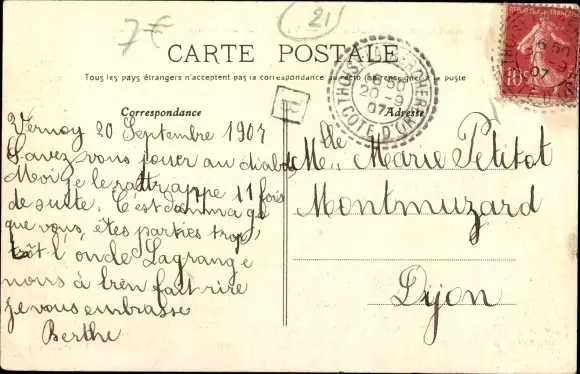 7€
21
CARTE POSTALE
Tous les pays étrangers n'acceptent pas la correspondance au recto (se renseigner à la poste
Correspondance
Adresse
REPUBLIQUE FRANÇAISE
10c
6 50
20 - 9
07
COTE D'OR
Vernoy 20 Septembre 1907
Savez vous jouer au diabolo
Moi je le rattrappe 11 fois
de suite. C'est dommage
que vous êtes parties trop
tôt l'oncle Lagrange
nous a bien fait rire
je vous embrasse
Berthe
Mlle Marie Petitot
Montmuzard
Dijon